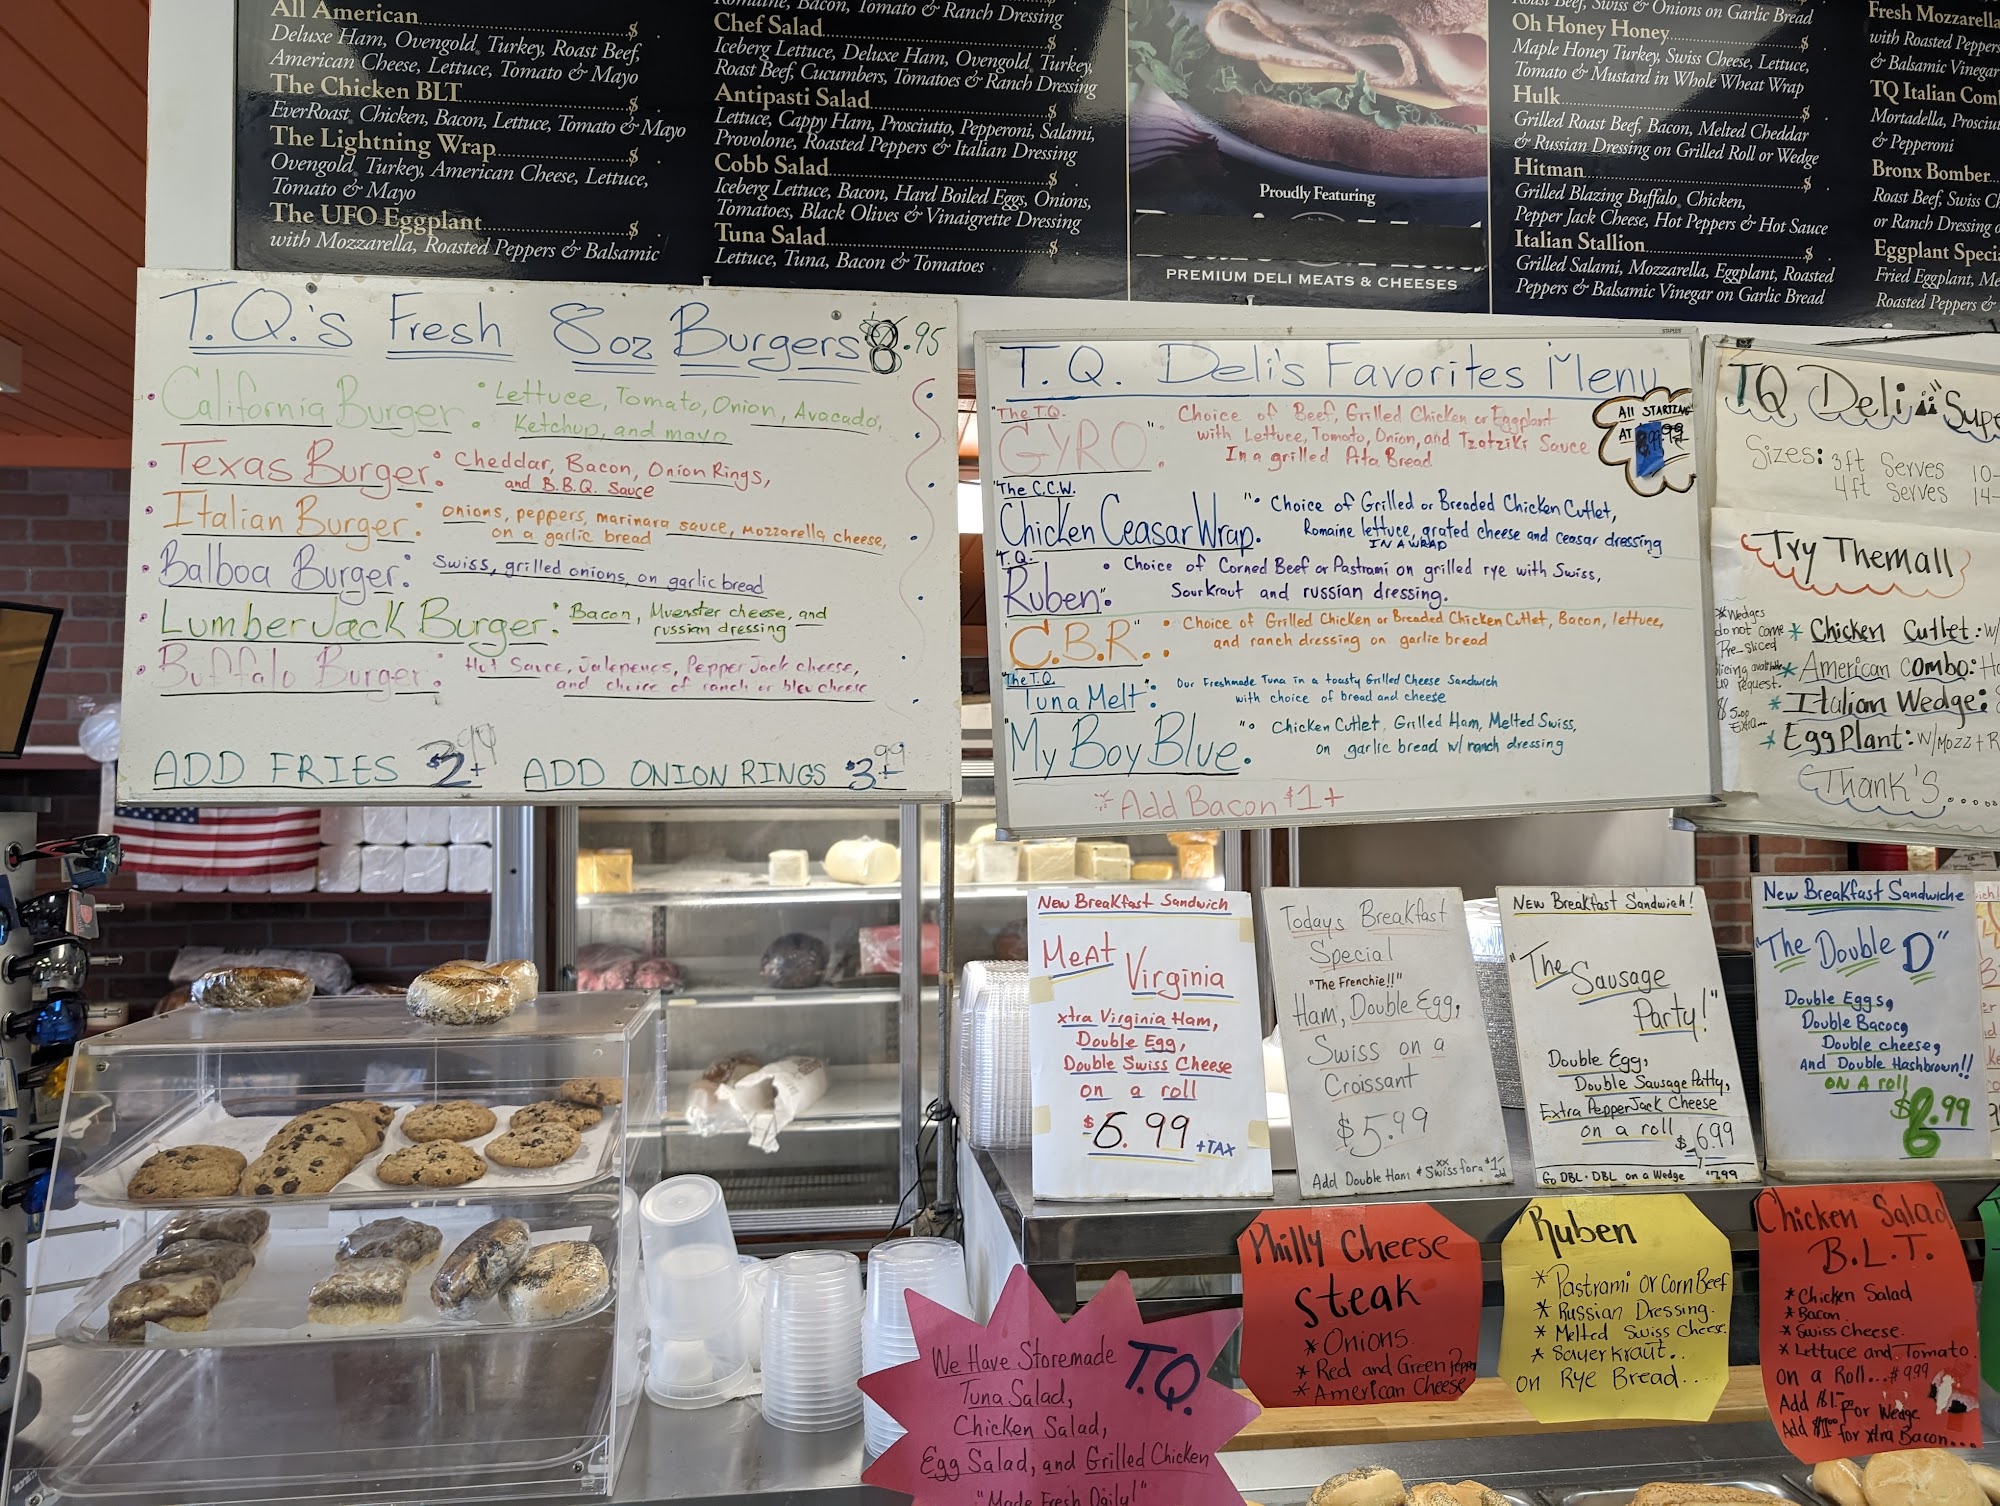 All American $
Deluxe Ham, Ovengold, Turkey, Roast Beef,
American Cheese, Lettuce, Tomato & Mayo
The Chicken BLT $
EverRoast, Chicken, Bacon, Lettuce, Tomato & Mayo
The Lightning Wrap $
Ovengold, Turkey, American Cheese, Lettuce,
Tomato & Mayo
The UFO Eggplant $
with Mozzarella, Roasted Peppers & Balsamic
Romaine, Bacon, Tomato & Ranch Dressing
Chef Salad $
Iceberg Lettuce, Deluxe Ham, Ovengold, Turkey,
Roast Beef, Cucumbers, Tomatoes & Ranch Dressing
Antipasti Salad $
Lettuce, Cappy Ham, Prosciutto, Pepperoni, Salami,
Provolone, Roasted Peppers & Italian Dressing
Cobb Salad $
Iceberg Lettuce, Bacon, Hard Boiled Eggs, Onions,
Tomatoes, Black Olives & Vinaigrette Dressing
Tuna Salad $
Lettuce, Tuna, Bacon & Tomatoes
Proudly Featuring
PREMIUM DELI MEATS & CHEESES
Roast Beef, Swiss & Onions on Garlic Bread
Oh Honey Honey $
Maple Honey Turkey, Swiss Cheese, Lettuce,
Tomato & Mustard in Whole Wheat Wrap
Hulk $
Grilled Roast Beef, Bacon, Melted Cheddar
& Russian Dressing on Grilled Roll or Wedge
Hitman $
Grilled Blazing Buffalo, Chicken,
Pepper Jack Cheese, Hot Peppers & Hot Sauce
Italian Stallion $
Grilled Salami, Mozzarella, Eggplant, Roasted
Peppers & Balsamic Vinegar on Garlic Bread
Fresh Mozzarella
with Roasted Peppers
& Balsamic Vinegar
TQ Italian Com
Mortadella, Prosciu
& Pepperoni
Bronx Bomber
Roast Beef, Swiss C
or Ranch Dressing o
Eggplant Speci
Fried Eggplant, Me
Roasted Peppers &
T.Q.'s Fresh 8oz Burgers 8.95
California Burger. Lettuce, Tomato, Onion, Avocado,
Ketchup, and mayo
Texas Burger. Cheddar, Bacon, Onion Rings,
and B.B.Q. Sauce
Italian Burger. onions, peppers, marinara sauce, mozzarella cheese,
on a garlic bread
Balboa Burger. Swiss, grilled onions, on garlic bread
LumberJack Burger. Bacon, Muenster cheese, and
russian dressing
Buffalo Burger. Hot Sauce, Jalepenos, Pepper Jack cheese,
and choice of ranch or bleu cheese
ADD FRIES $2.99+ ADD ONION RINGS $3.99+
T.Q. Deli's Favorites Menu
All STARTING
AT
"The T.Q.
GYRO". Choice of Beef, Grilled Chicken or Eggplant
with Lettuce, Tomato, Onion, and Tzotziki Sauce
In a grilled Pita Bread
"The C.C.W.
Chicken Ceasar Wrap". Choice of Grilled or Breaded Chicken Cutlet,
Romaine lettuce, grated cheese and ceasar dressing
IN A WRAP
T.Q.
Ruben". Choice of Corned Beef or Pastrami on grilled rye with Swiss,
Sourkraut and russian dressing.
"C.B.R". Choice of Grilled Chicken or Breaded Chicken Cutlet, Bacon, lettuce,
and ranch dressing on garlic bread
"The T.Q.
Tuna Melt". Our Freshmade Tuna in a toasty Grilled Cheese Sandwich
with choice of bread and cheese
"My Boy Blue". Chicken Cutlet, Grilled Ham, Melted Swiss,
on garlic bread w/ ranch dressing
*Add Bacon $1+
TQ Deli Supe
Sizes: 3ft Serves 10-
4ft Serves 14-
Try Them all
*Wedges
do not come
Pre-Sliced
Slicing available
up request.
* Chicken Cutlet: w/
* American Combo: Ha
* Italian Wedge:
* EggPlant: w/Mozz + R
Thank's.....
New Breakfast Sandwich
Meat Virginia
xtra Virginia Ham,
Double Egg,
Double Swiss Cheese
on a roll
$6.99 +TAX
Todays Breakfast
Special
"The Frenchie!!"
Ham, Double Egg,
Swiss on a
Croissant
$5.99
Add Double Ham & Swiss for a $1
New Breakfast Sandwich!
"The Sausage
Party!"
Double Egg,
Double Sausage Patty,
Extra PepperJack Cheese
on a roll $6.99
Go DBL. DBL on a Wedge $7.99
New Breakfast Sandwiche
"The Double D"
Double Eggs,
Double Bacoc,
Double cheese,
And Double Hashbrown!!
ON A roll
$6.99
Philly Cheese
Steak
* Onions.
* Red and Green Pepper
* American Cheese
Ruben
* Pastrami or Corn Beef
* Russian Dressing.
* Melted Swiss Cheese.
* Sauerkraut..
on Rye Bread....
Chicken Salad
B.L.T.
* Chicken Salad
* Bacon
* Swiss Cheese.
* Lettuce and Tomato.
on a Roll...$9.99
Add $1- For Wedge
Add $1.00 for xtra Bacon...
We Have Storemade T.Q.
Tuna Salad,
Chicken Salad,
Egg Salad, and Grilled Chicken
"Made Fresh Daily!"